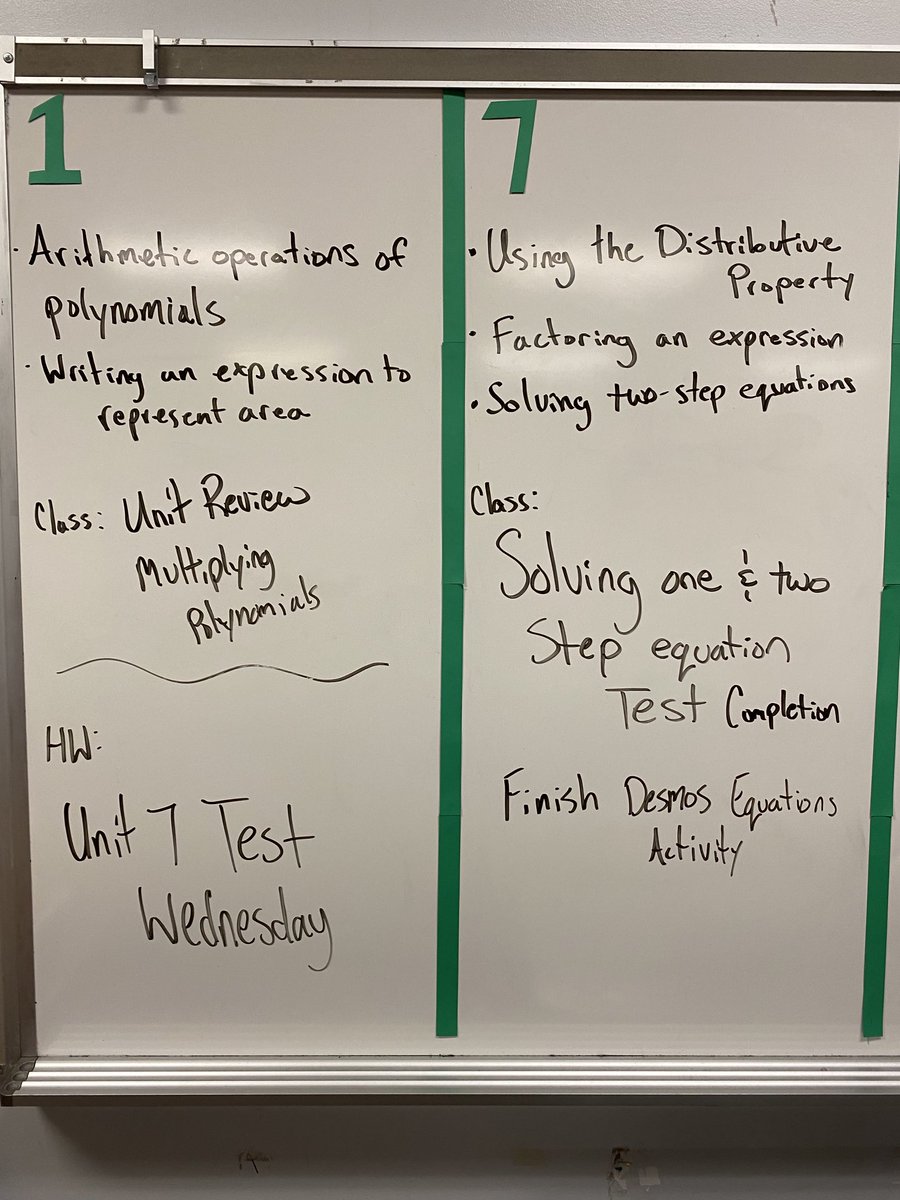 1
· Arithmetic operations of
polynomials
· Writing an expression to
represent area
Class: Unit Review
Multiplying
Polynomials
HW:
Unit 7 Test
Wednesday
7
· Using the Distributive
Property
· Factoring an expression
· Solving two-step equations
Class:
Solving one & two
Step equation
Test Completion
Finish Desmos Equations
Activity